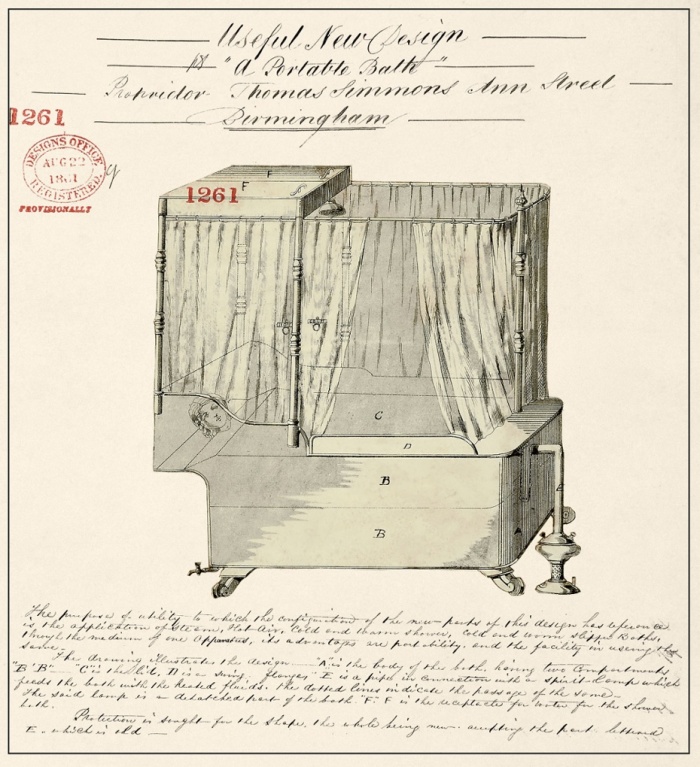 Useful New Design
for "A Portable Bath"
Proprietor Thomas Simmons Ann Street
Birmingham
1261
DESIGNS OFFICE
AUG 22
1861
REGISTERED
PROVISIONALLY
F
F
1261
C
D
B
B
A
E
The purpose of utility to which the configuration of the new parts of this design has reference
is the application of Steam, Hot-Air, Cold and warm shower, cold and warm Slipper Baths,
through the medium of one Apparatus, its advantages are portability, and the facility in using the
same.
The drawing illustrates the design "A" is the body of the bath, having two Compartments
"B B" "C" is the lid, D is a swing flange, E is a pipe in connection with a spirit Lamp which
feeds the bath with the heated fluids. the dotted lines indicate the passage of the same
The said lamp is a detached part of the bath, F. F is the receptacle for water for the shower
bath.
Protection is sought for the shape, the whole being new excepting the part lettered
E. which is old